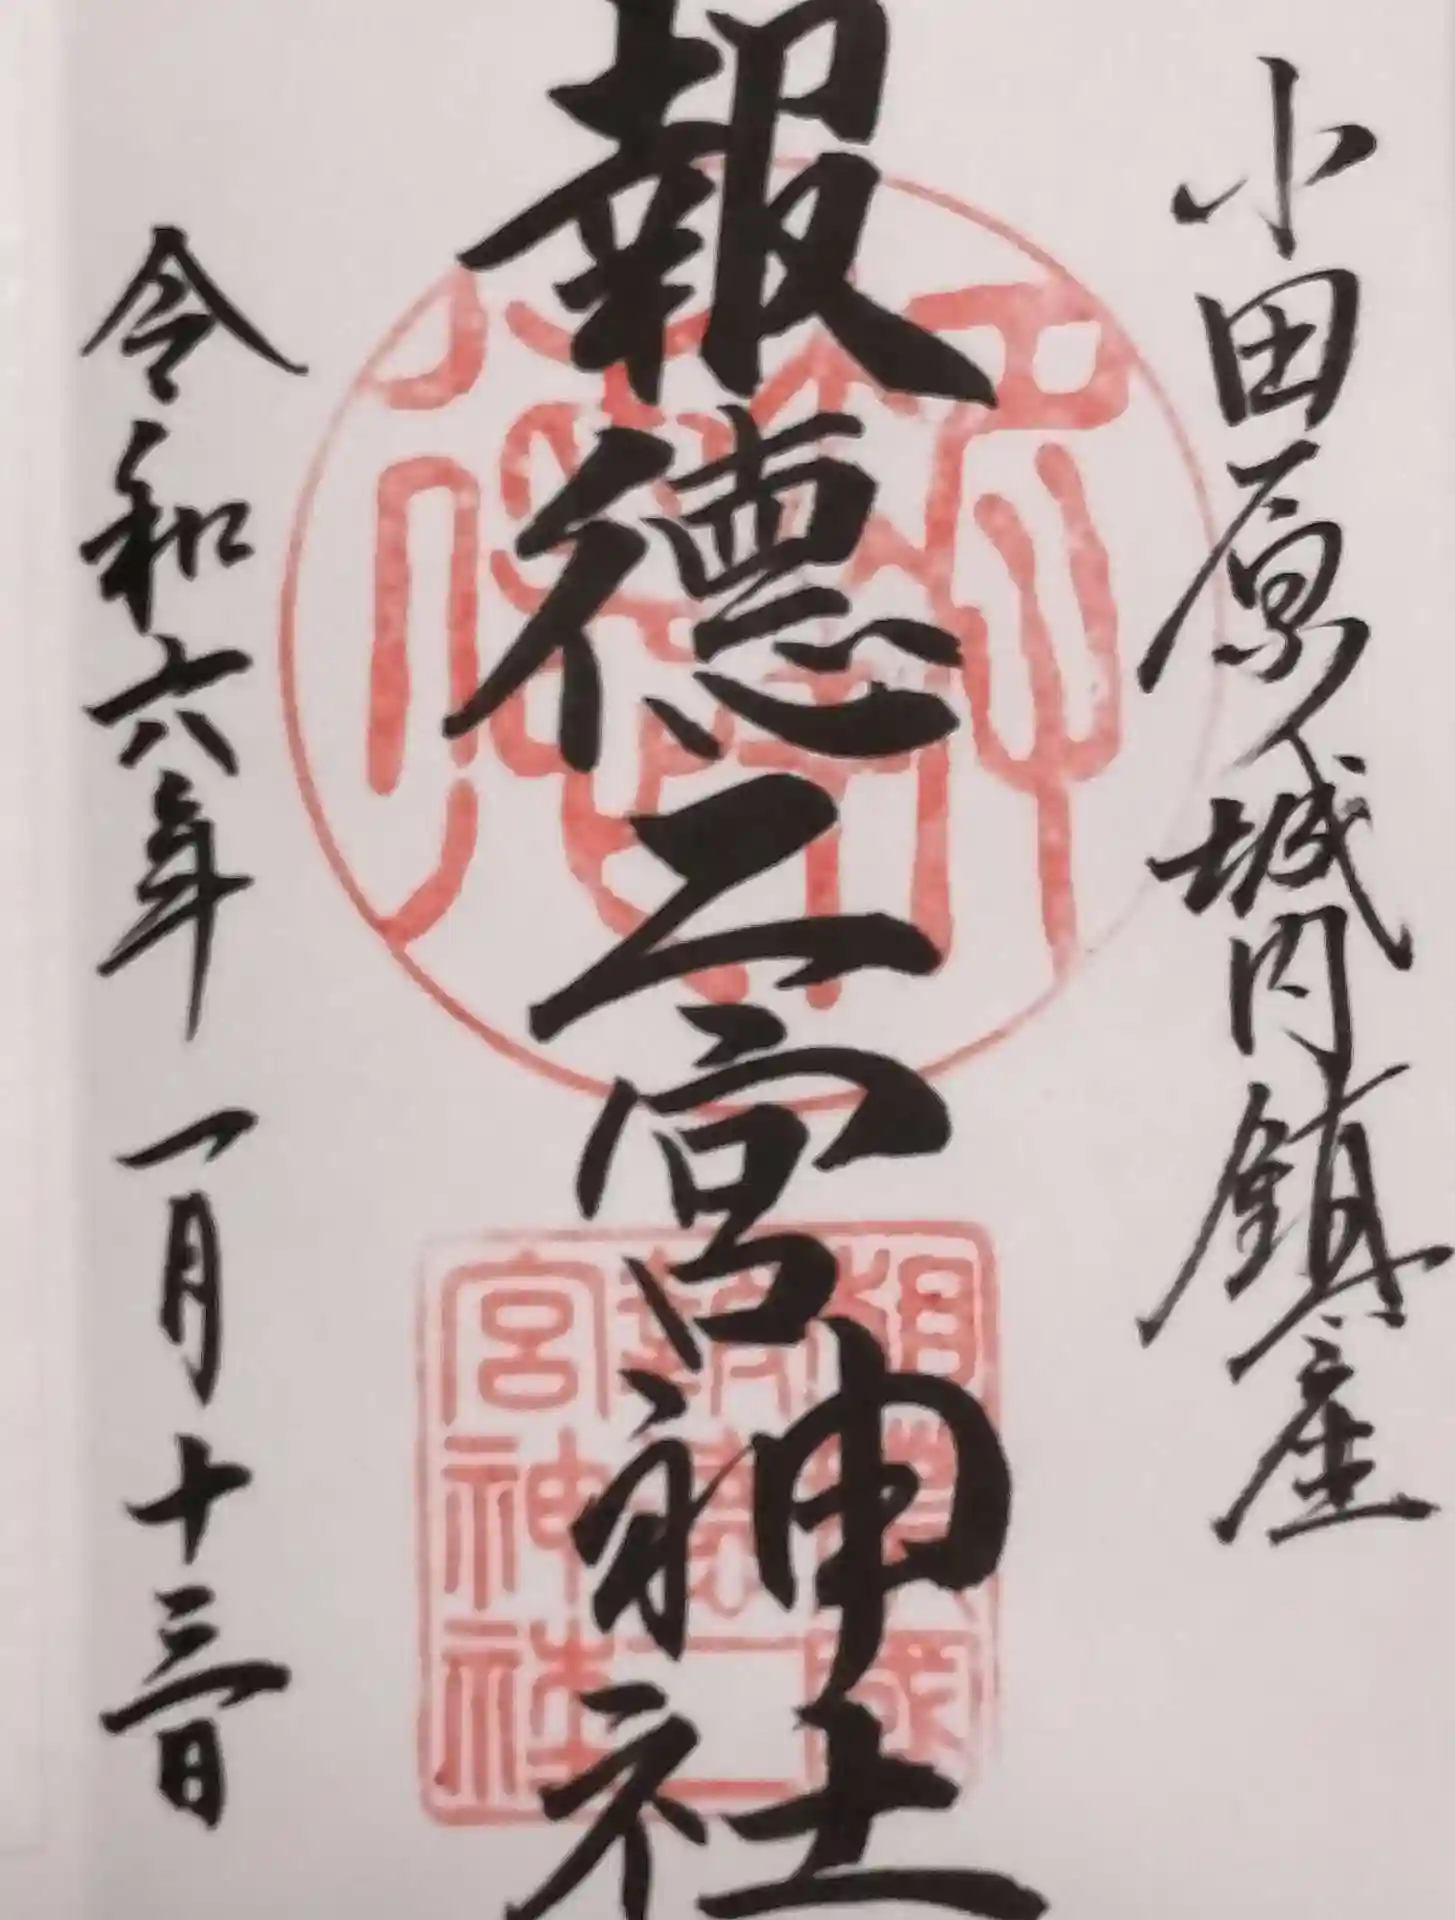 小田原城内鎮座
報徳二宮神社
令和六年 一月十三日
相模國
報徳二
宮神社